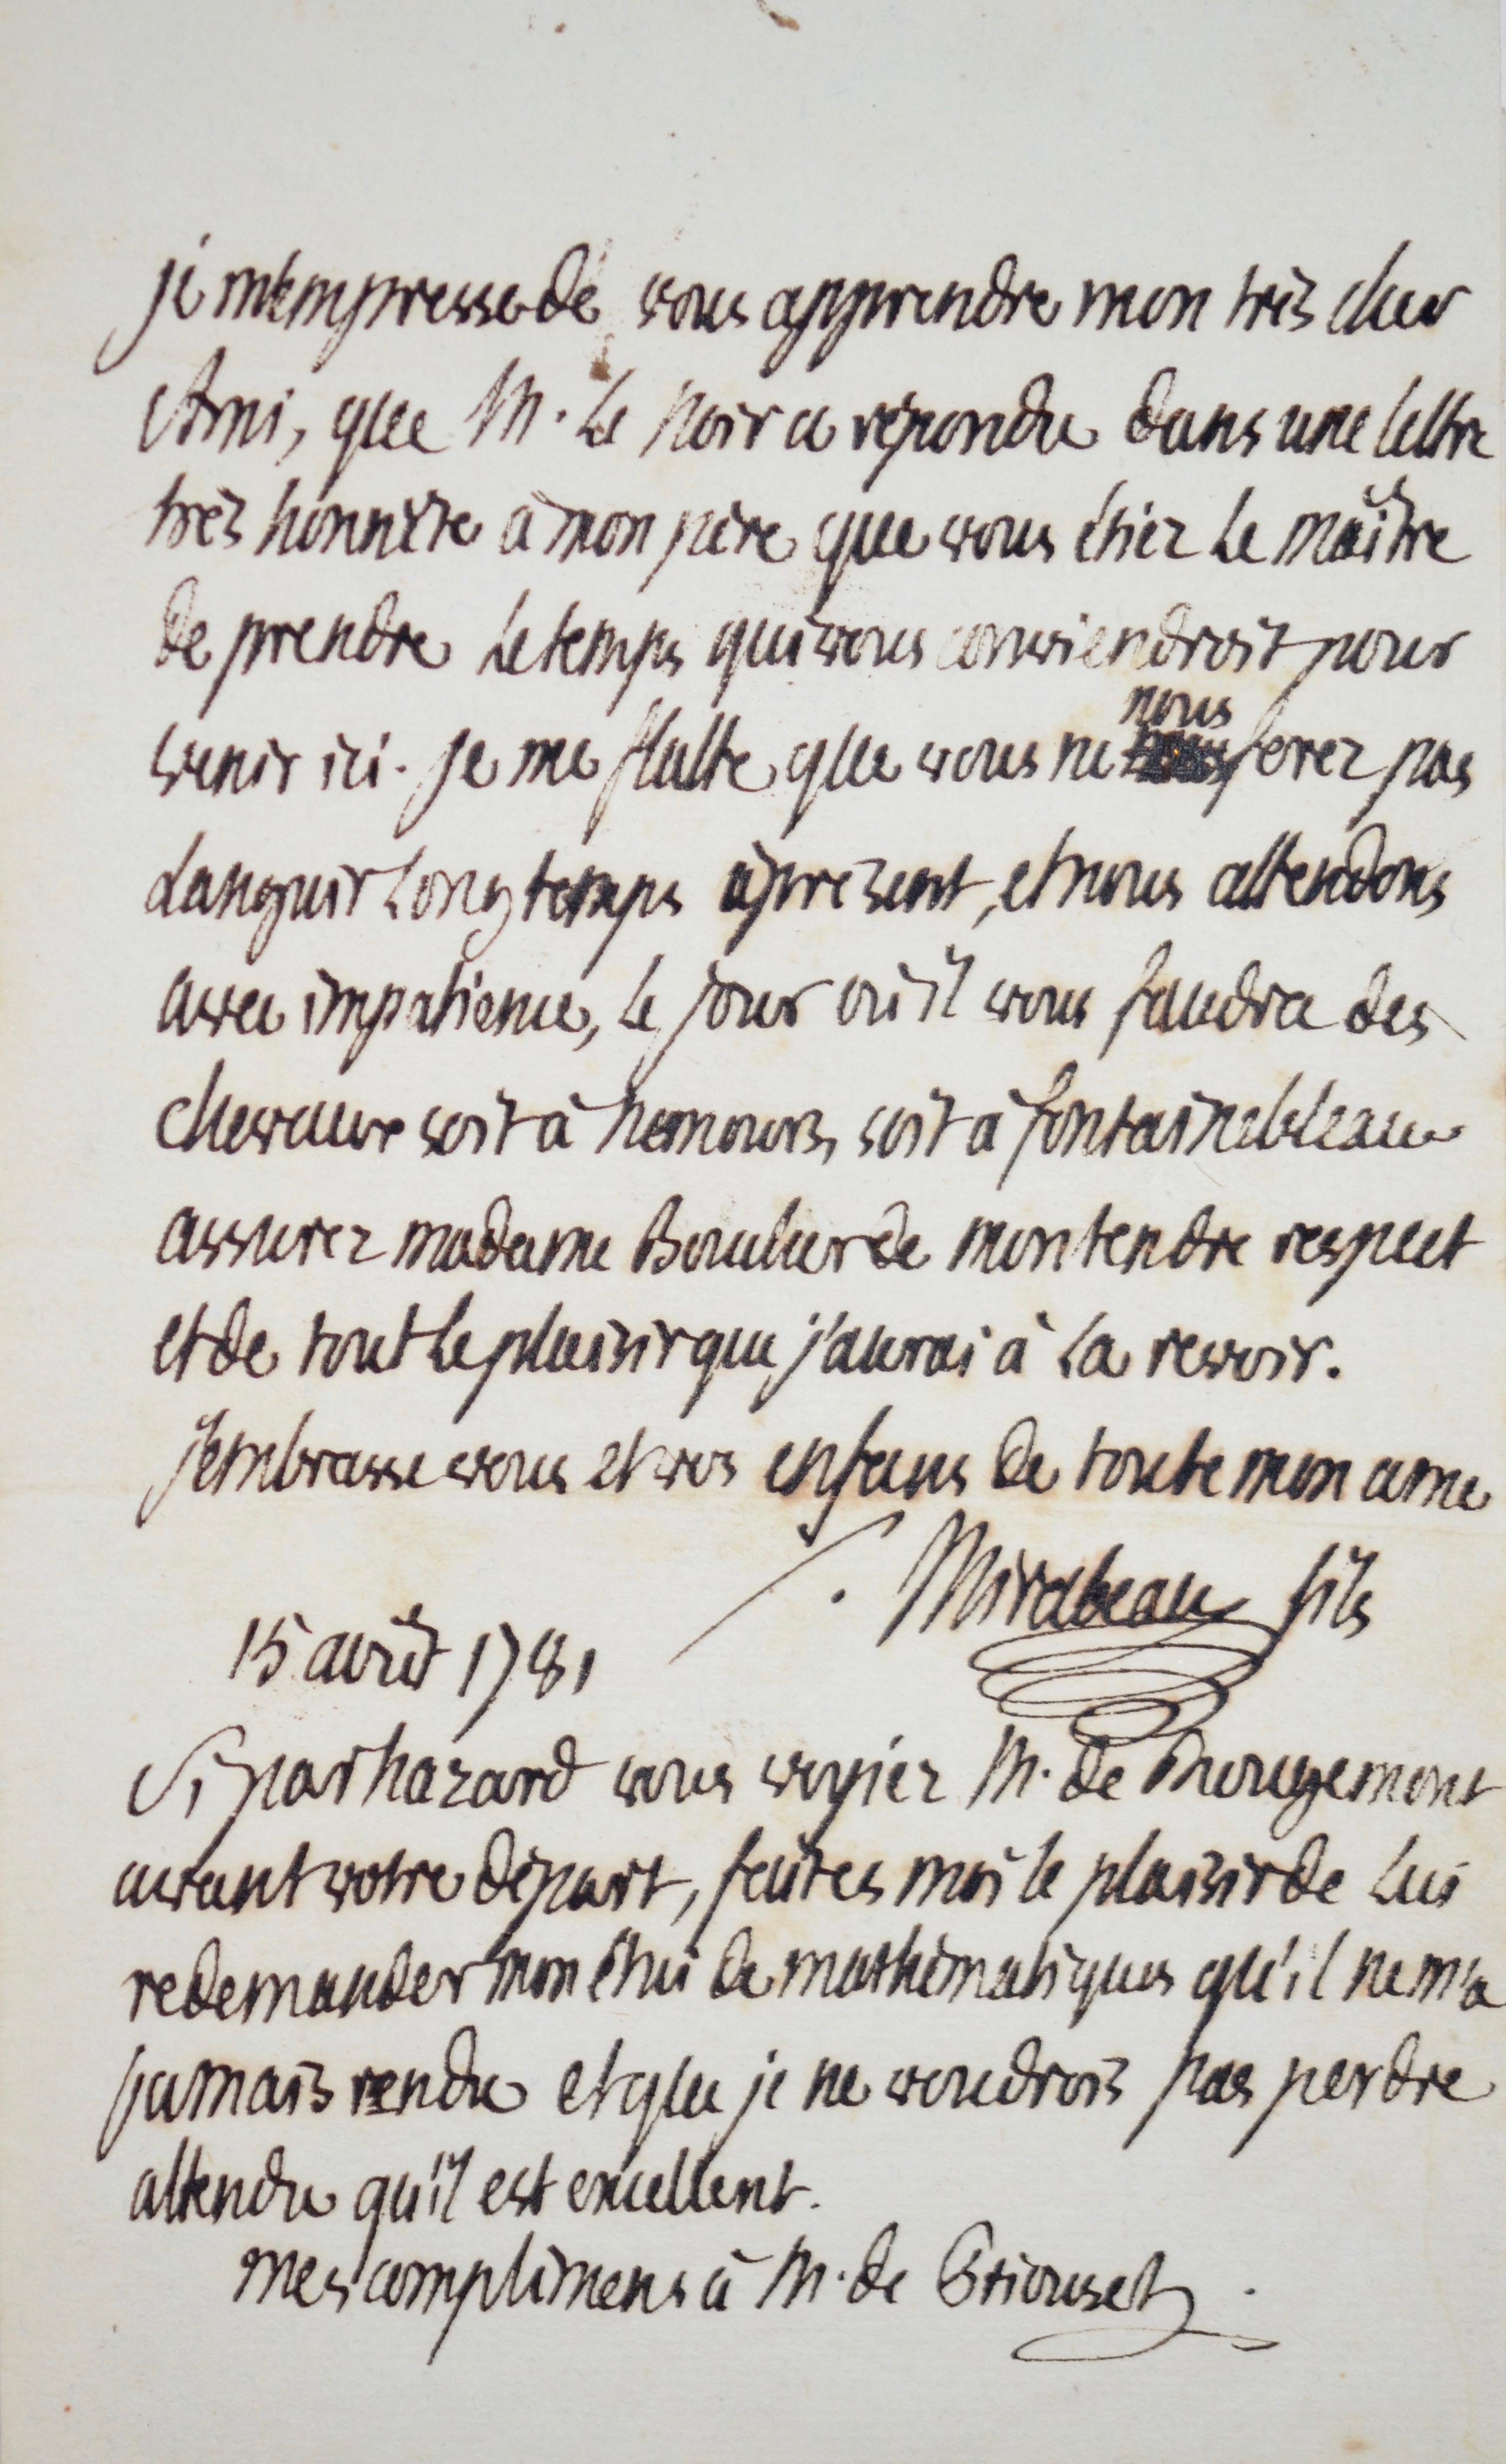 je m'empresse de vous apprendre mon très cher
Ami, que M. Le Noir a répondu dans une lettre
très honnête à mon père que vous étiez Le maître
de prendre Le temps qui vous conviendroit pour
venir ici. je me flatte que vous ne nous ferez pas
Languir Longtemps àprésent, et nous attendons
avec impatience, Le jour où il vous faudra des
chevaux soit à Nemours, soit à fontainebleau
assurez madame Boucher de mon tendre respect
et de tout Le plaisir que j'aurai à La revoir.
j'embrasse vous et vos enfans de toute mon ame
Mirabeau fils
15 août 1781
Si par hazard vous voyiez M. de Rougemont
avant votre départ, faites moi le plaisir de Lui
redemander mon étui de mathématiques qu'il ne m'a
jamais rendu et que je ne voudrois pas perdre
attendu qu'il est excellent.
mes complimens à M. de